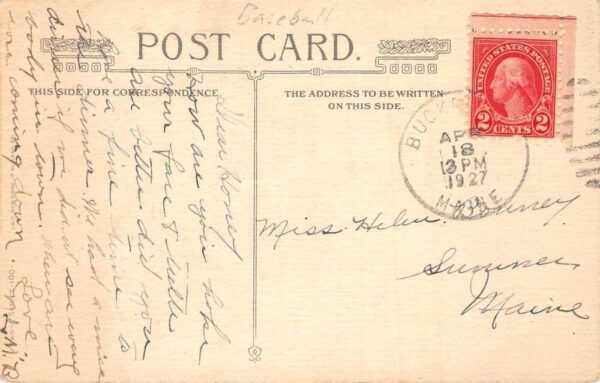 Baseball
POST CARD.
THIS SIDE FOR CORRESPONDENCE.
THE ADDRESS TO BE WRITTEN
ON THIS SIDE.
Dear Honey
how are you hope
your face & teeth
are better did you
have a fine time
the dinner. We had a nice
dance if we did not see every
body in town. When are
you coming down.
Love
UNITED STATES POSTAGE
2 CENTS 2
BUCK
APR
18
3 PM
1927
MAINE
Miss Helen
Sumner
Maine